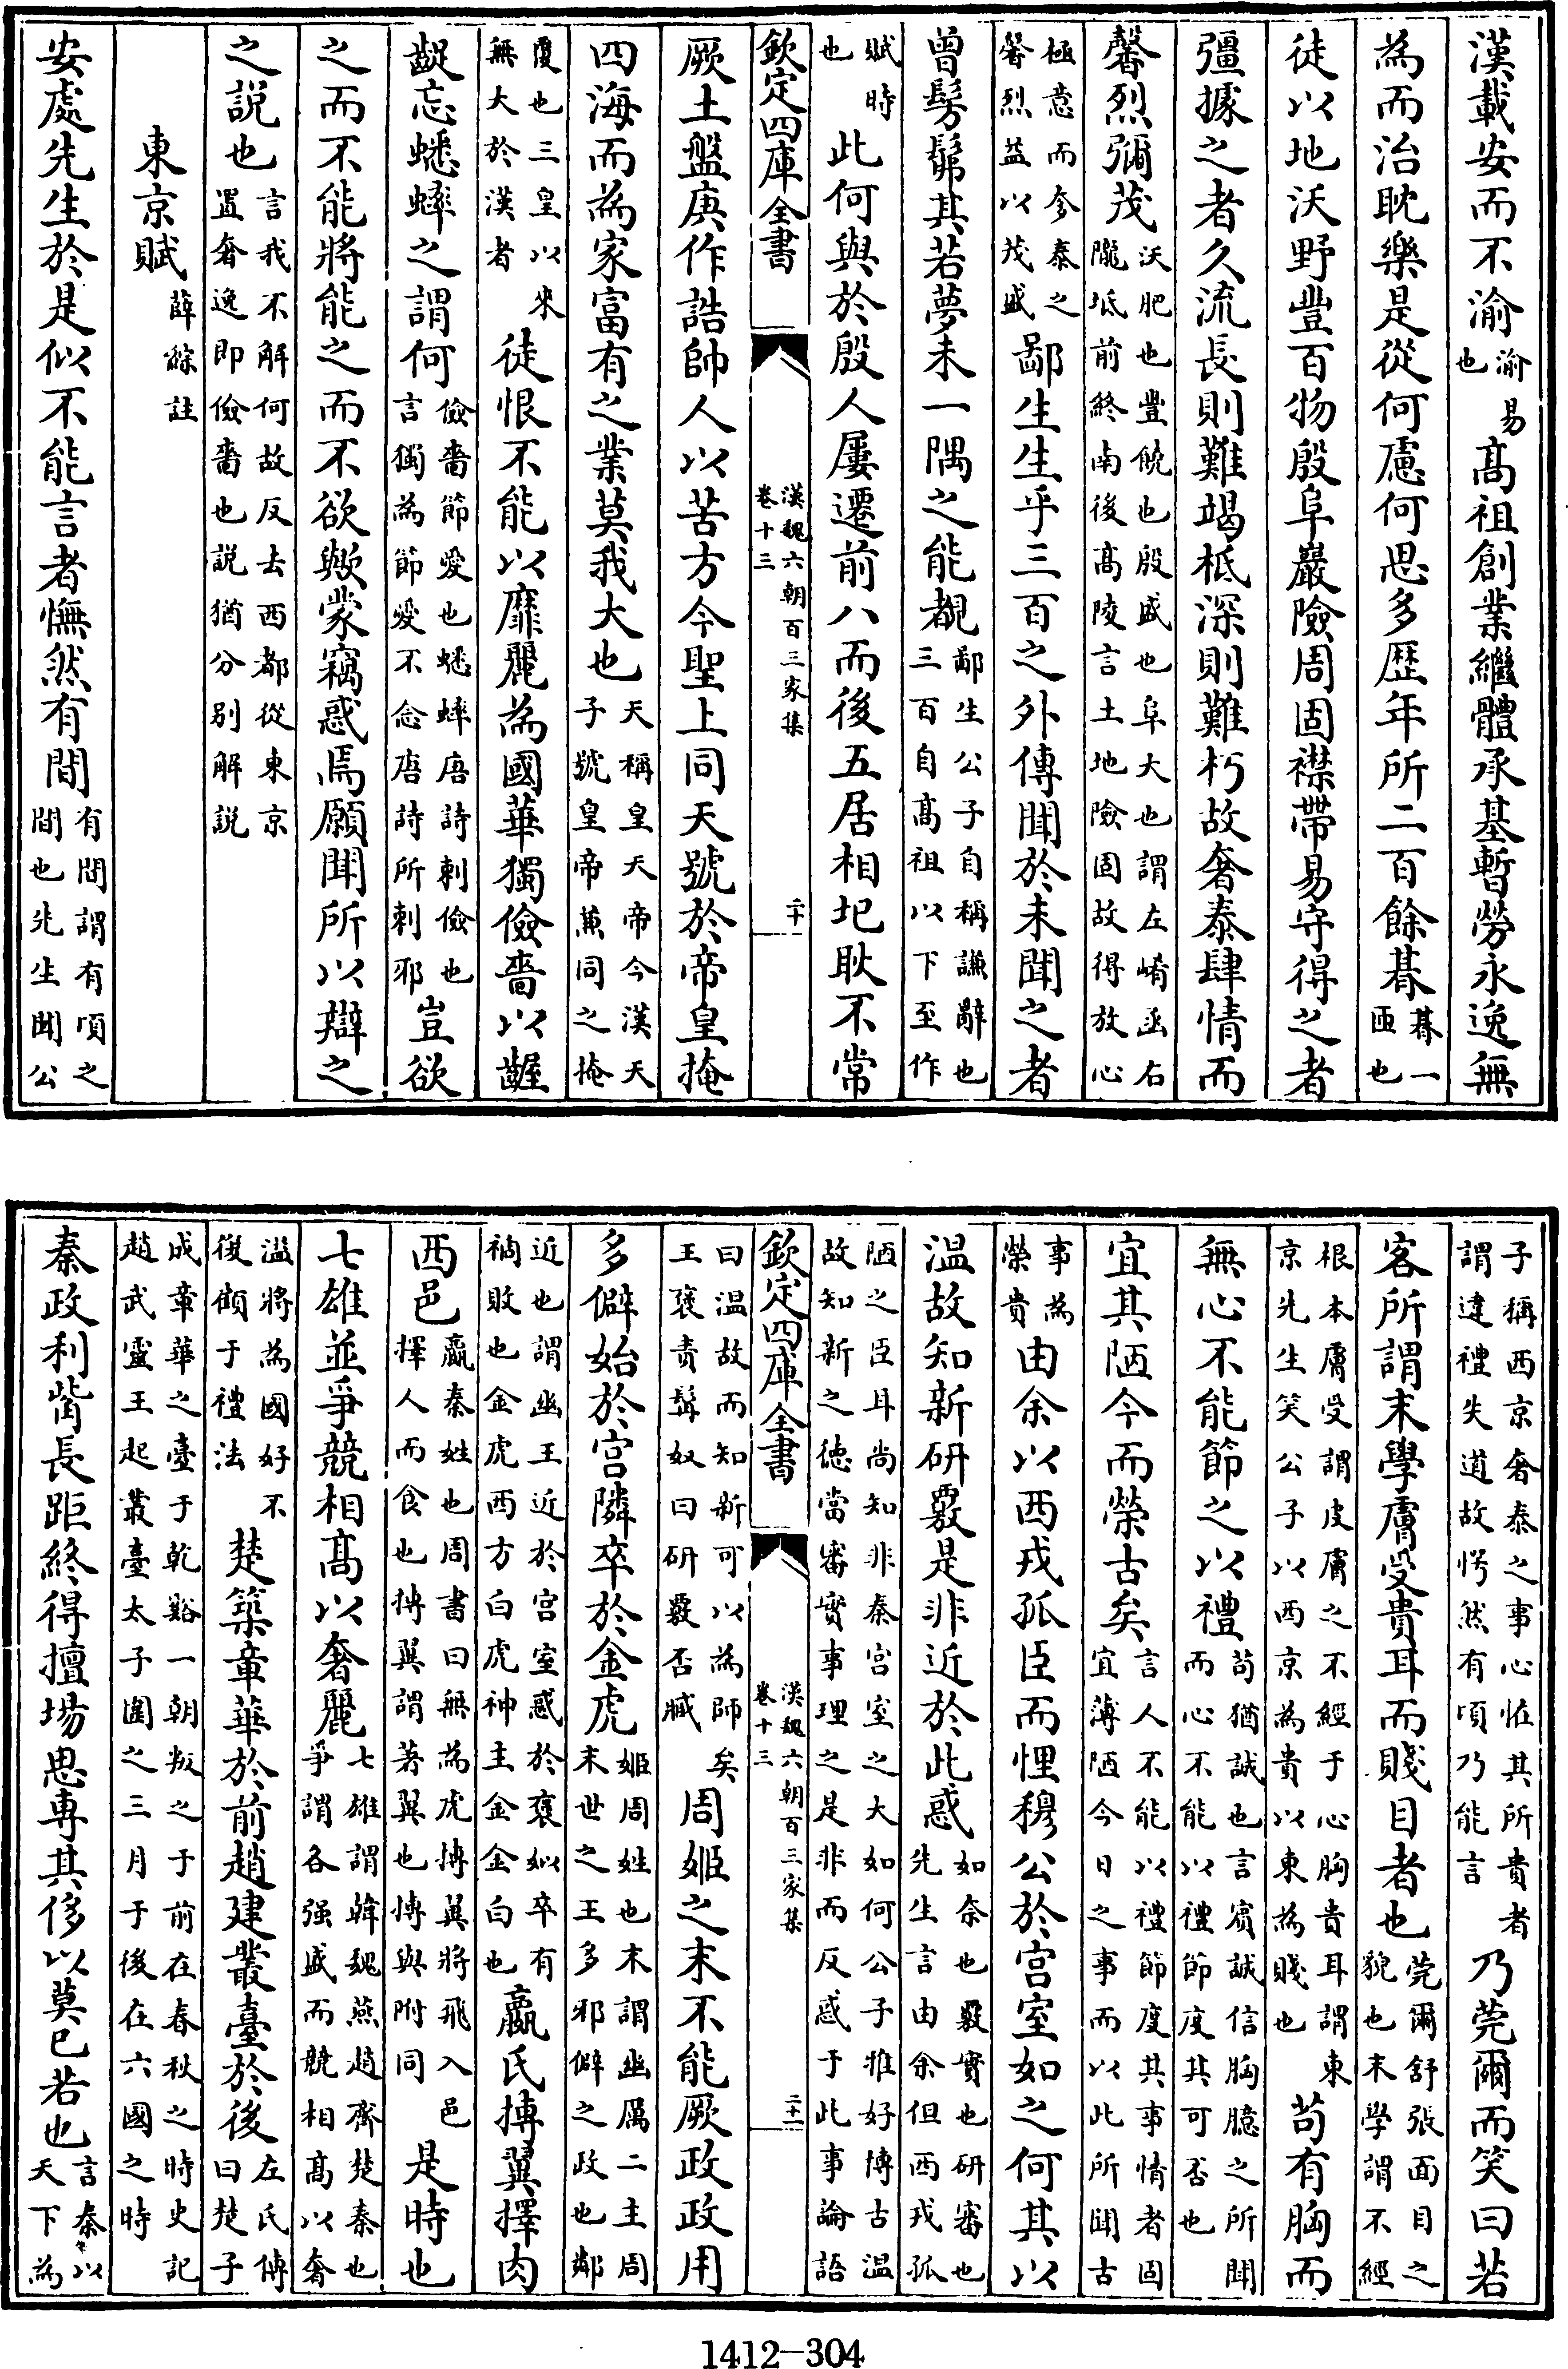 漢載安而不渝渝易也高祖創業繼體承基暫勞永逸無
為而治耽樂是從何慮何思多歴年所二百餘朞朞一匝也
徒以地沃野豐百物殷阜巖險周固襟帶易守得之者
彊據之者久流長則難竭柢深則難朽故奢泰肆情而
馨烈彌茂沃肥也豐饒也殷盛也阜大也謂左崤函右隴坻前終南後髙陵言土地險固故得放心
極意而夸泰之馨烈益以茂盛鄙生生乎三百之外傳聞於未聞之者
曾髣髴其若夢未一隅之能覩鄙生公子自稱謙辭也三百自髙祖以下至作
賦時也此何與於殷人屢遷前八而後五居相圯耿不常
欽定四庫全書
漢魏六朝百三家集
卷十三
二十
厥土盤庚作誥帥人以苦方今聖上同天號於帝皇掩
四海而為家富有之業莫我大也天稱皇天帝今漢天子號皇帝兼同之掩
覆也三皇以來無大於漢者徒恨不能以靡麗為國華獨儉嗇以齷
齪忘蟋蟀之謂何儉嗇節愛也蟋蟀唐詩刺儉也言獨為節愛不念唐詩所刺邪豈欲
之而不能將能之而不欲歟蒙竊惑焉願聞所以辯之
之說也言我不解何故反去西都從東京置奢逸即儉嗇也説猶分别解説
東京賦薛綜註
安處先生於是似不能言者憮然有間有間謂有頃之間也先生聞公
子稱西京奢泰之事心恠其所貴者謂違禮失道故愕然有頃乃能言乃莞爾而笑曰若
客所謂末學膚受貴耳而賤目者也莞爾舒張面目之貌也末學謂不經
根本膚受謂皮膚之不經于心胸貴耳謂東京先生笑公子以西京為貴以東為賤也苟有胸而
無心不能節之以禮苟猶誠也言賓誠信胸臆之所聞而心不能以禮節度其可否也
宜其陋今而榮古矣言人不能以禮節度其事情者固宜薄陋今日之事而以此所聞古
事為榮貴由余以西戎孤臣而悝穆公於宫室如之何其以
温故知新研覈是非近於此惑如奈也覈實也研審也先生言由余但西戎孤
陋之臣耳尚知非秦宫室之大如何公子雅好博古温故知新之徳當審實事理之是非而反惑于此事論語
欽定四庫全書
漢魏六朝百三家集
卷十三
二十一
曰温故而知新可以為師矣王褒責髯奴曰研覈否臧周姬之末不能厥政政用
多僻始於宫隣卒於金虎姬周姓也末謂幽厲二主周末世之王多邪僻之政也鄰
近也謂幽王近於宫室惑於褒姒卒有禍敗也金虎西方白虎神主金金白也嬴氏搏翼擇肉
西邑嬴秦姓也周書曰無為虎搏翼將飛入邑擇人而食也搏翼謂著翼也搏與附同是時也
七雄並爭競相高以奢麗七雄謂韓魏燕趙齊楚秦也爭謂各强盛而競相髙以奢
溢將為國好不復顧于禮法楚築章華於前趙建叢臺於後左氏傳曰楚子
成章華之臺于乾谿一朝叛之于前在春秋之時史記趙武靈王起叢臺太子圍之三月于後在六國之時
秦政利觜長距終得擅場思專其侈以莫已若也言秦以天下為
1412-304